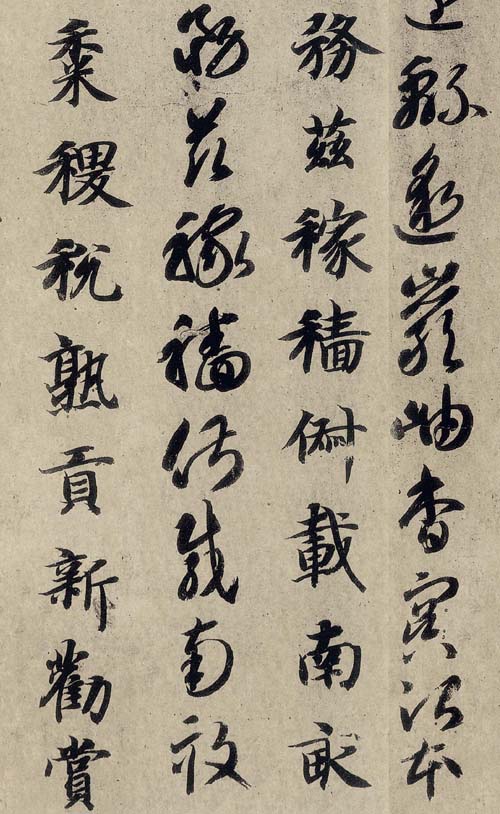 緜邈巖岫杳冥治本
務茲稼穡俶載南畝
務茲稼穡俶載南畝
黍稷稅熟貢新勸賞